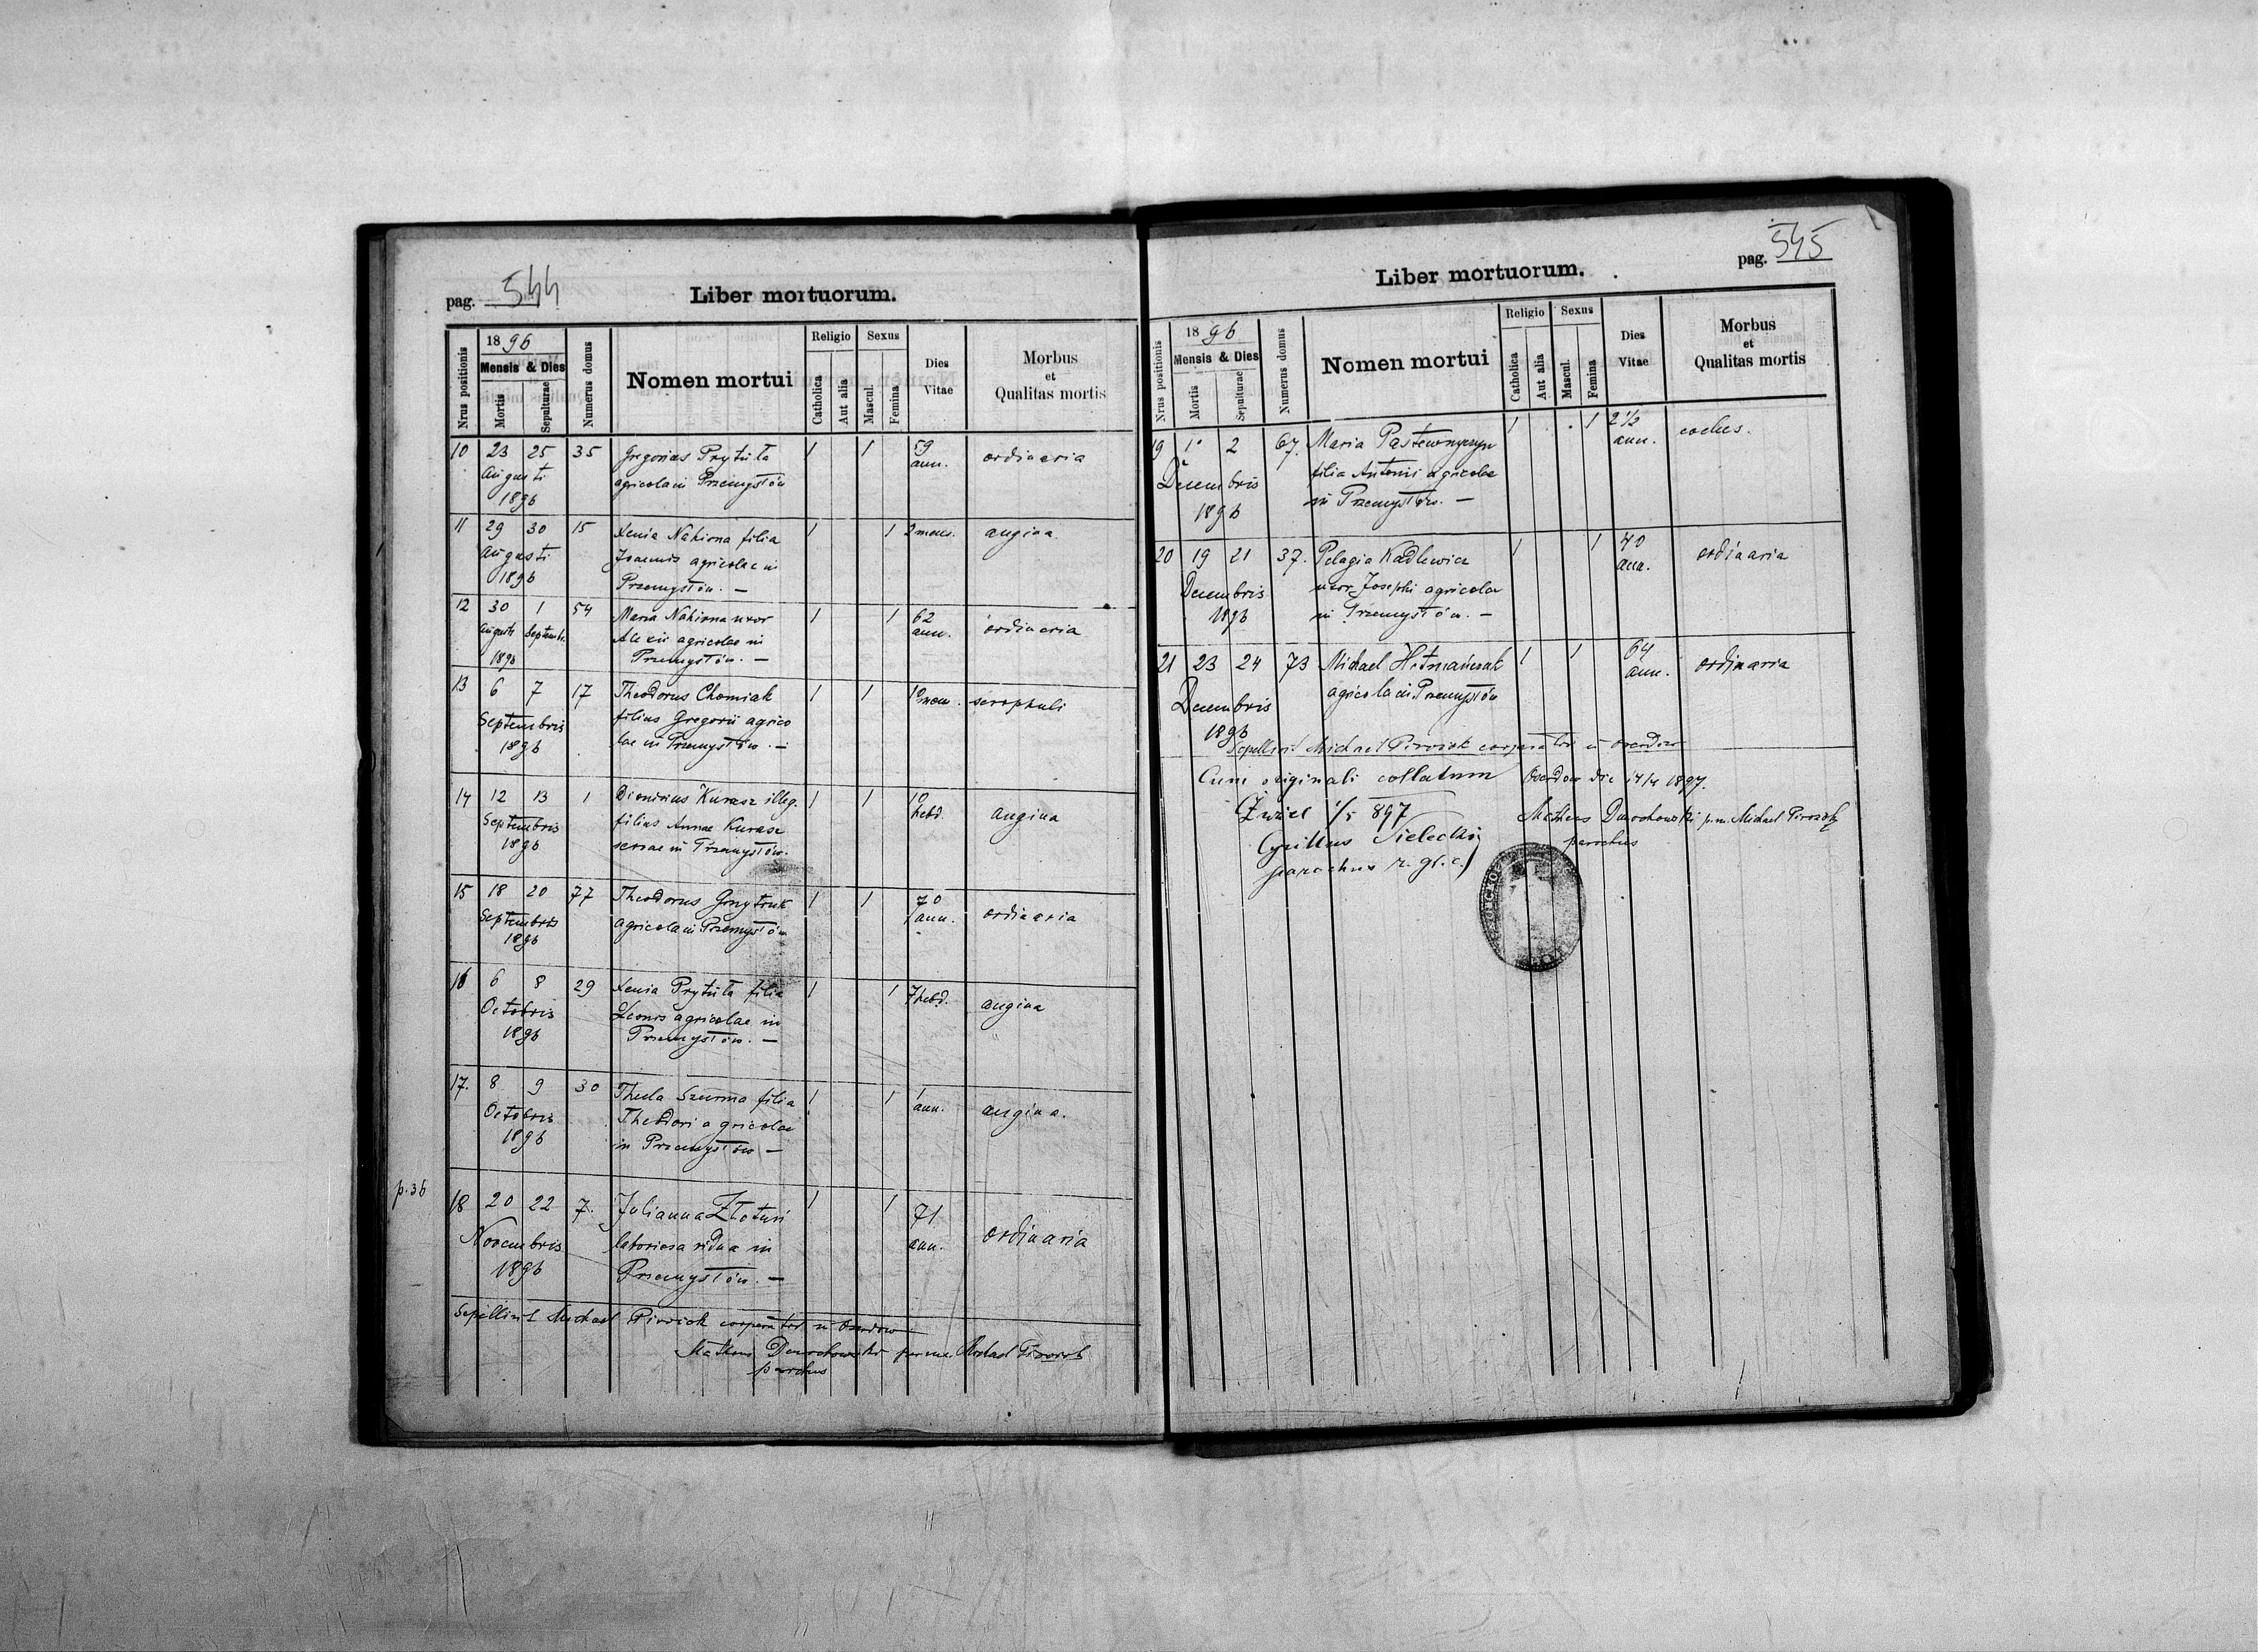 pag. 544
Liber mortuorum.
Nrus positionis
1896
Mensis & Dies
Mortis
Sepulturae
Numerus domus
Nomen mortui
Religio
Catholica
Aut alia
Sexus
Mascul.
Femina
Dies
Vitae
Morbus
et
Qualitas mortis
10 23 25 35 Gregorius Prytuła 1 1 59 ordinaria
Augusti agricola in Przemysłów ann.
1896
11 29 30 15 Xenia Nahirna filia 1 1 2 mens. angina
Augusti Joannis agricolae in
1896 Przemysłów. —
12 30 1 54 Maria Nahirna uxor 1 1 62 ordinaria
Augusti Septembr. Alexii agricolae in ann.
1896 Przemysłów. —
13 6 7 17 Theodorus Chomiak 1 1 10 scrophuli
Septembris filius Gregorii agrico mens.
1896 lae in Przemysłów. —
14 12 13 1 Dionisius Kurasz illeg. 1 1 10 angina
Septembris filius Annae Kurasz hebd.
1896 servae in Przemysłów.
15 18 20 77 Theodorus Gryytruk 1 1 70 ordinaria
Septembris agricola in Przemysłów ann.
1896
16 6 8 29 Xenia Prytuła filia 1 1 7 hebd. angina
Octobris Leonis agricolae in
1896 Przemysłów. —
17. 8 9 30 Thecla Szurma filia 1 1 1 angina.
Octobris Theodori agricolae ann.
1896 in Przemysłów —
p. 36
18 20 22 7. Julianna 1 1 71 ordinaria
Novembris laboriosa vidua in ann.
1896 Przemysłów. —
Sepelivit Michael cooperator in Oserdow
Matheus per me Michael
parochus
pag. 545
Liber mortuorum.
Nrus positionis
1896
Mensis & Dies
Mortis
Sepulturae
Numerus domus
Nomen mortui
Religio
Catholica
Aut alia
Sexus
Mascul.
Femina
Dies
Vitae
Morbus
et
Qualitas mortis
19 1 2 67. Maria 1 1 2 1/2
Decembris filia Antonii agricolae ann.
1896 in Przemysłów. —
20 19 21 37. Pelagia Kadlewicz 1 1 40 ordinaria
Decembris uxor Josephi agricolae ann.
1896 in Przemysłów. —
21 23 24 73 Michael Hetmańczuk 1 1 64 ordinaria
Decembris agricola in Przemysłów ann.
1896
Sepelivit Michael cooperator in Oserdow
Cum originali collatum Oserdow die 17/4 1897.
1/5 897 Matheus p.m. Michael
Cyrillus Sielecki parochus
parochus r. gr. c.